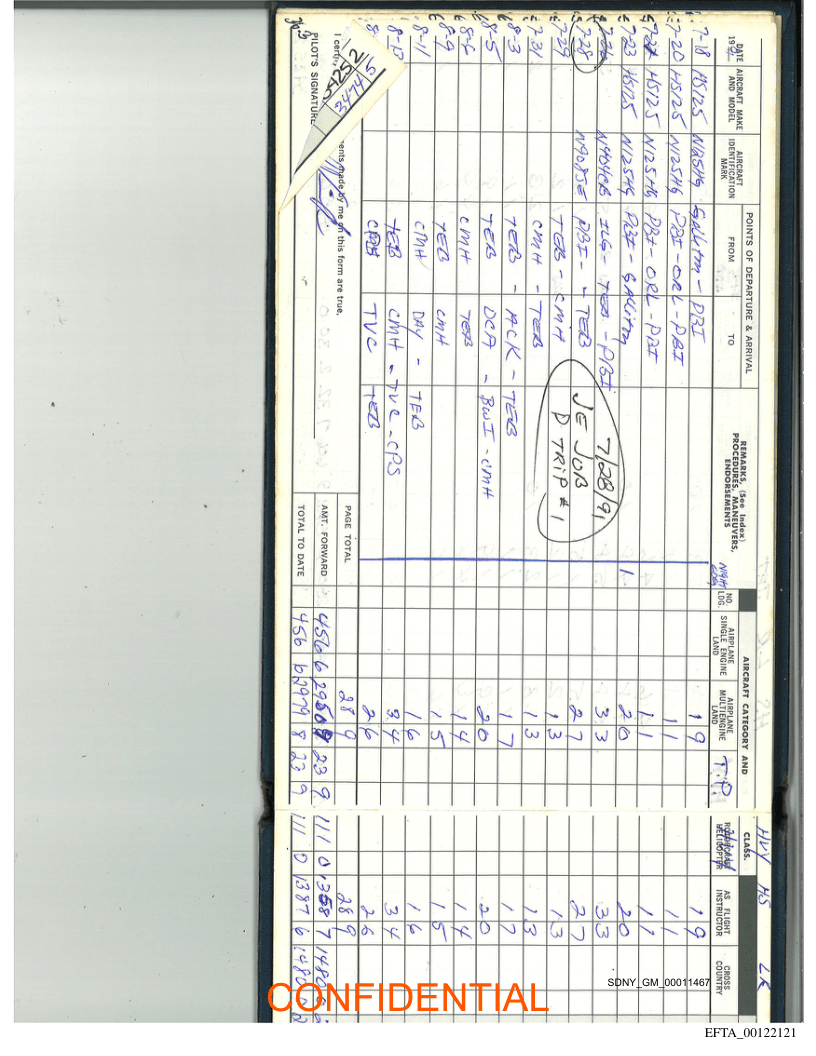 DATE 19 91
AIRCRAFT MAKE AND MODEL
AIRCRAFT IDENTIFICATION MARK
POINTS OF DEPARTURE & ARRIVAL
FROM
TO
REMARKS, (See Index) PROCEDURES, MANEUVERS, ENDORSEMENTS
NO. LDG.
AIRCRAFT CATEGORY AND CLASS.
AIRPLANE SINGLE ENGINE LAND
AIRPLANE MULTIENGINE LAND
T.P.
ROTORCRAFT HELICOPTER
AS FLIGHT INSTRUCTOR
CROSS COUNTRY
HVY HS LR
7-18 HS125 N125HG - PBI 1 9 1 9
7-20 HS125 N125HG PBI - ORL - PBI 1 1 1 1
7-22 HS125 N125HG PBI - ORL - PBI 1 1 1 1
7-23 HS125 N125HG PBI - 1 2 0 2 0
TEB - PBI 3 3 3 3
7-28 N908JE PBI - TEB 2 7 2 7
7-29 TEB - CMH 1 3 1 3
7-31 CMH - TEB 1 3 1 3
8-3 TEB - ACK - TEB 1 7 1 7
8-5 TEB DCA - BWI - CMH 2 0 2 0
8-6 CMH TEB 1 4 1 4
8-9 TEB CMH 1 5 1 5
8-11 CMH DAY - TEB 1 6 1 6
8-13 TEB CMH - TVC - CPS 3 4 3 4
8- TVC TEB 2 6 2 6
7/28/91
JE JOB
D TRIP # 1
PAGE TOTAL 28 9 28 9
AMT. FORWARD 456 6 23 9 111 0
TOTAL TO DATE 456 6 2979 8 23 9 111 0 1387 6
I cert
ents made by me on this form are true.
PILOT'S SIGNATURE
04252
34745
SDNY_GM_00011467
CONFIDENTIAL
EFTA_00122121